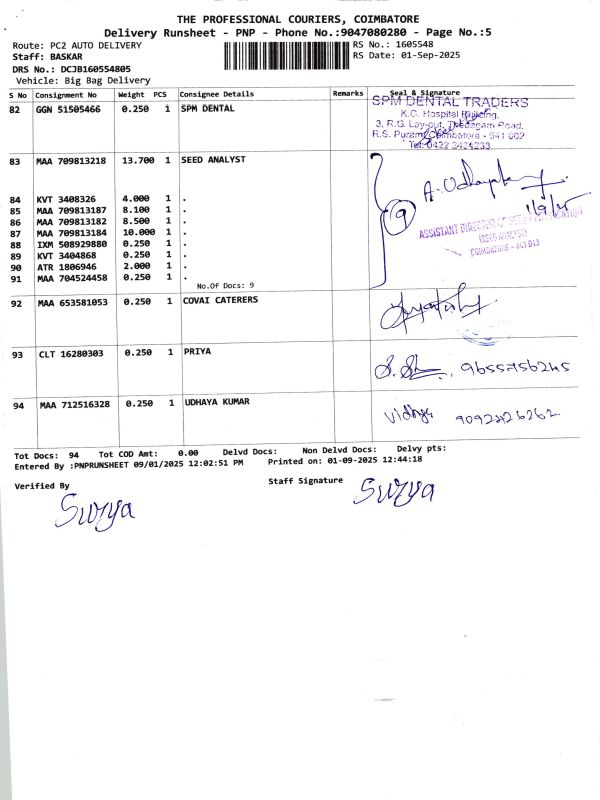 THE PROFESSIONAL COURIERS, COIMBATORE
Delivery Runsheet - PNP - Phone No.:9047080280 - Page No.:5
Route: PC2 AUTO DELIVERY RS No.: 1605548
Staff: BASKAR RS Date: 01-Sep-2025
DRS No.: DCJB160554805
Vehicle: Big Bag Delivery
S No Consignment No Weight PCS Consignee Details Remarks Seal & Signature
82 GGN 51505466 0.250 1 SPM DENTAL
SPM DENTAL TRADERS
K.G. Hospital Building,
3, R.G. Lay-out, Thadagam Road,
R.S. Puram, Coimbatore - 641 002
Tel: 0422 2424233
83 MAA 709813218 13.700 1 SEED ANALYST
A. Udhaya
1/9/25
84 KVT 3408326 4.000 1 .
85 MAA 709813187 8.100 1 .
86 MAA 709813182 8.500 1 .
87 MAA 709813184 10.000 1 .
88 IXM 508929880 0.250 1 .
89 KVT 3404868 0.250 1 .
90 ATR 1806946 2.000 1 .
91 MAA 704524458 0.250 1 .
9
ASSISTANT DIRECTOR OF
(SEED ANALYST)
COIMBATORE - 641 013
No.Of Docs: 9
92 MAA 653581053 0.250 1 COVAI CATERERS
93 CLT 16280303 0.250 1 PRIYA
9655756245
94 MAA 712516328 0.250 1 UDHAYA KUMAR
Vidhya
Tot Docs: 94 Tot COD Amt: 0.00 Delvd Docs: Non Delvd Docs: Delvy pts:
Entered By :PNPRUNSHEET 09/01/2025 12:02:51 PM Printed on: 01-09-2025 12:44:18
Verified By Staff Signature
Surya Surya